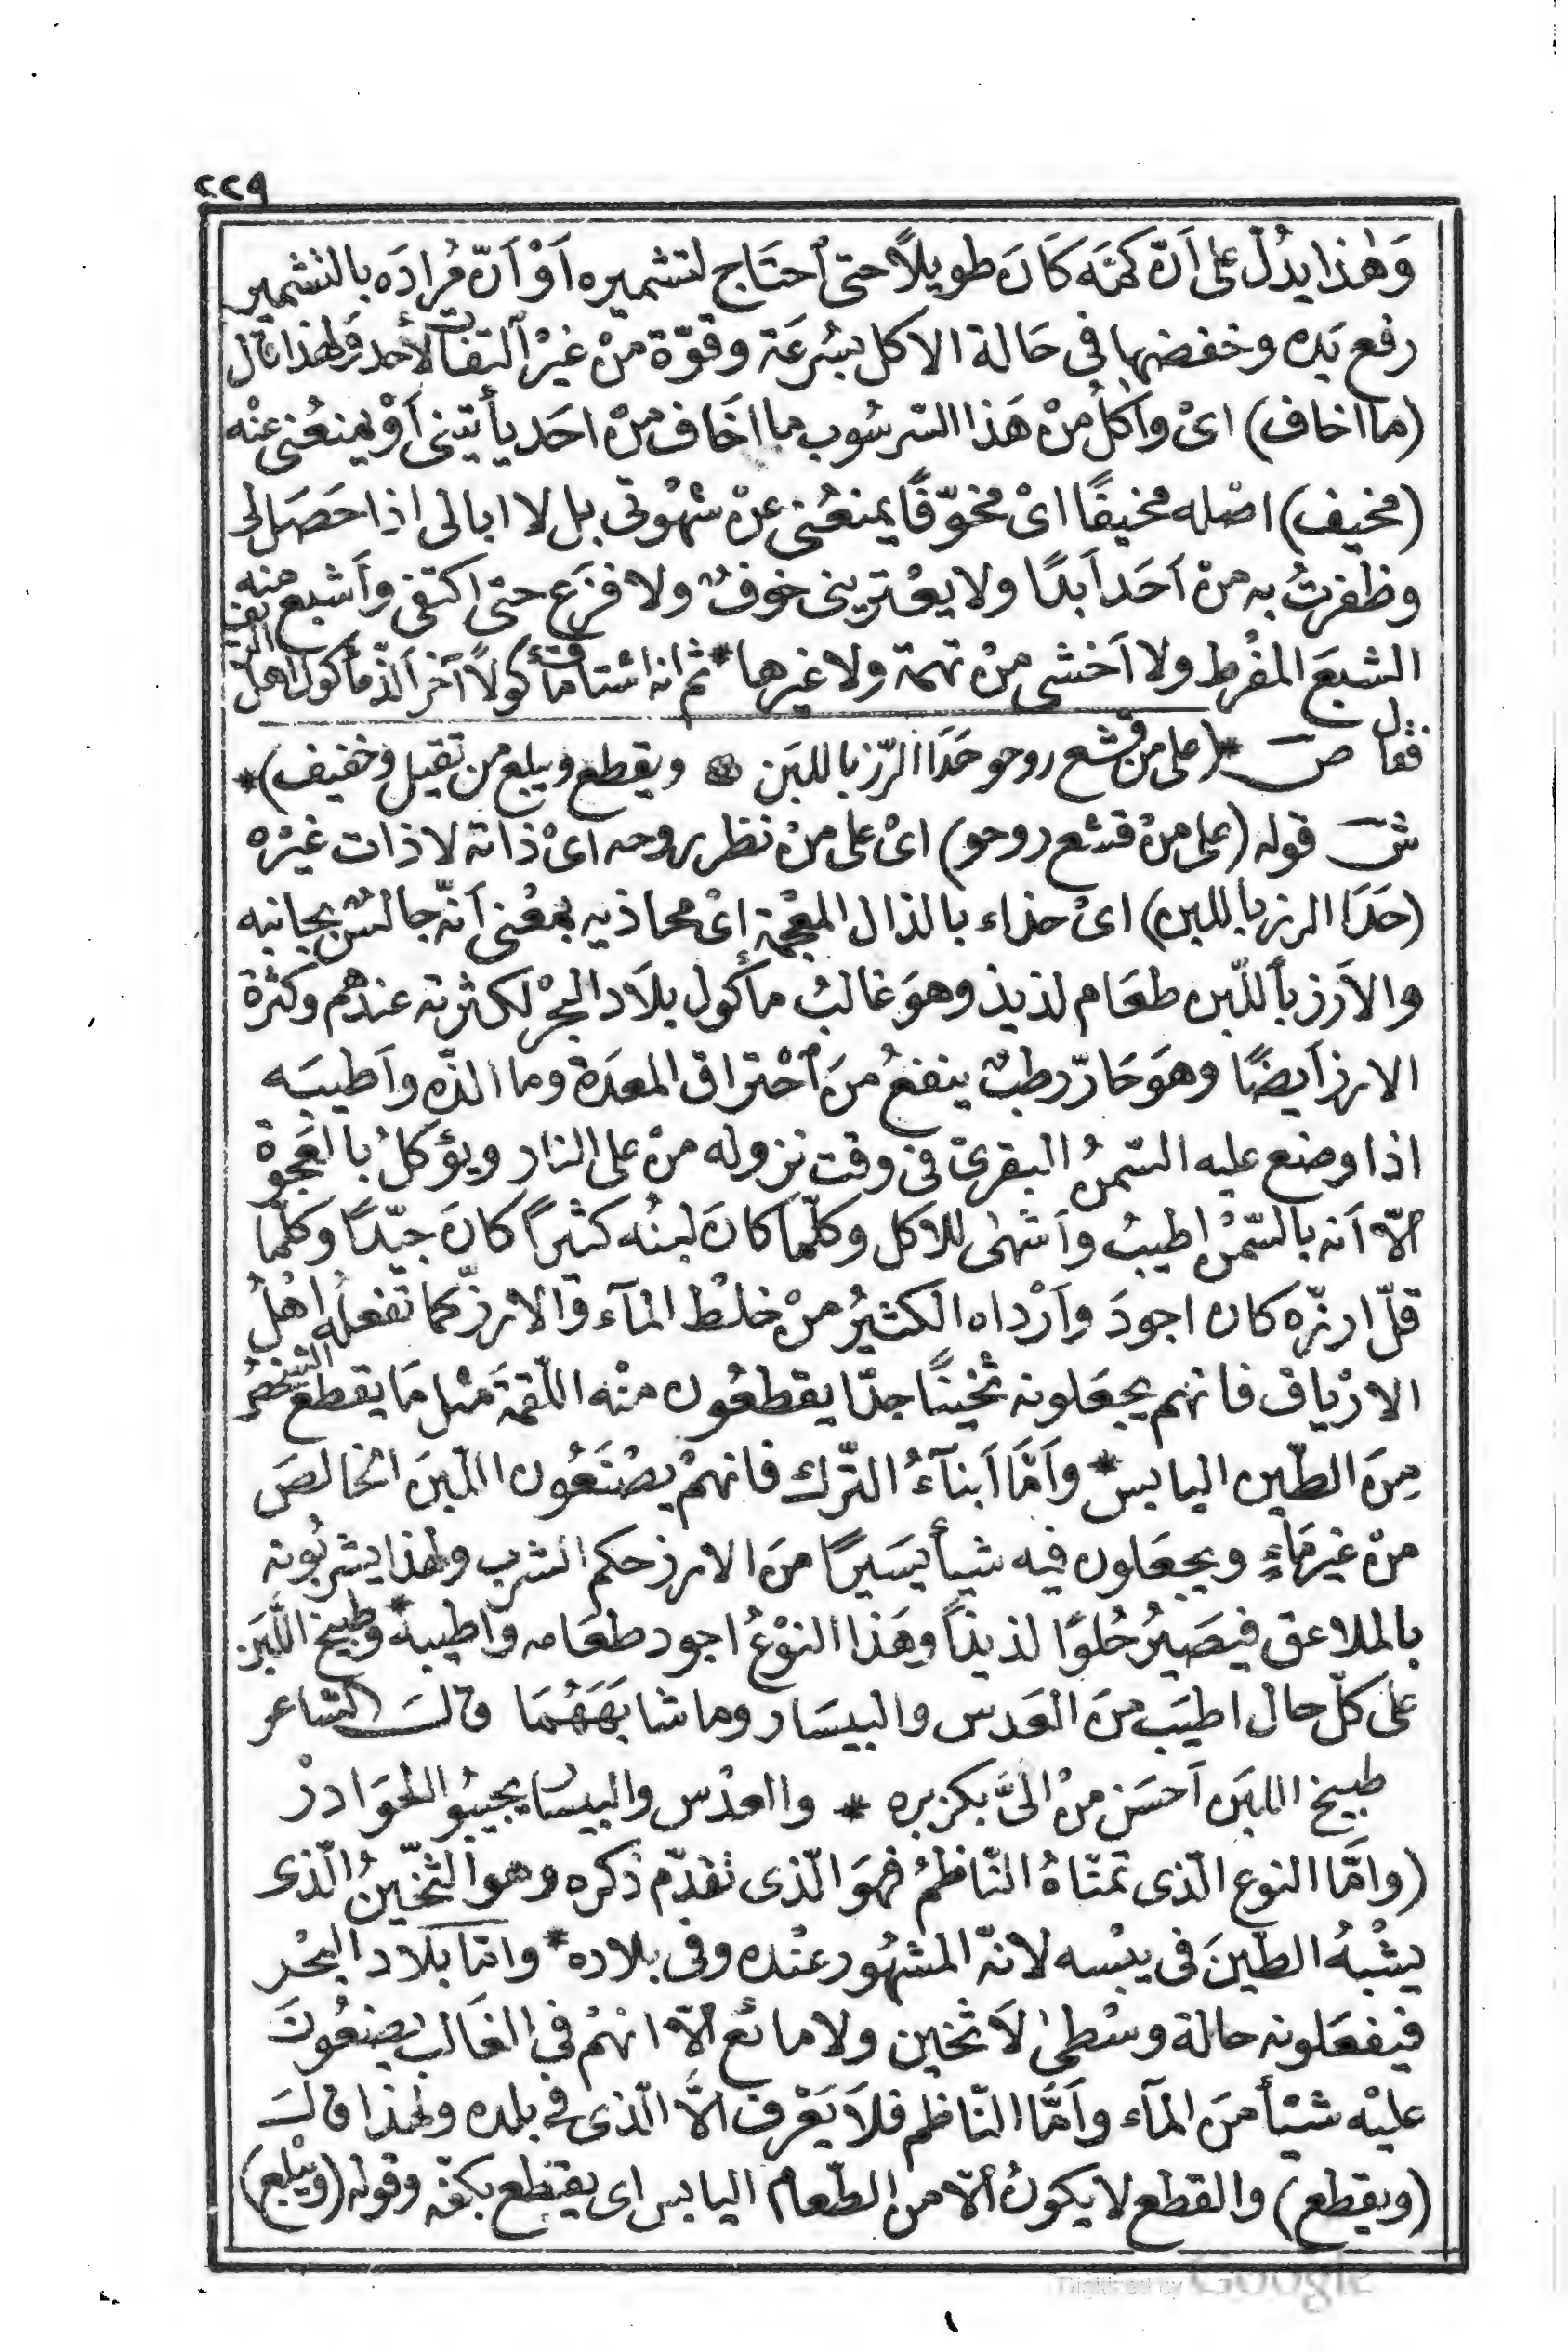 ٢٢٩
وَهٰذا يدُلّ على اَنّ كمّه كَانَ طويلاً حتى ٱحتَاج لتشميره اَوْ اَنّ مُرادَه بالتشمير
رفع يَده وخفضها فى حَالة الاكل بسُرعَة وقوّة منْ غيْر ٱلتفات لأحد ولهذا قال
(ما اخاف) اىْ واٰكلُ منْ هَذا السّرسُوب ما اخَاف منْ احَد يأتينى اَوْ يمنعُنى عنْه
(مخيف) اصْله مخيفًا اىْ مخوّفًا يمنعُنى عنْ شهْوتى بل لا ابالى اذا حَصَل لى
وظفرتُ به منْ اَحَد اَبدًا ولا يعْترينى خوفٌ ولا فزَع حتى اكتفى واَشبع منه
الشبعَ المفْرط ولا اَخشى منْ تهمة ولا غيرها * ثم انه اشتاق مأكولاً آخر اَلذّ مأكول اهل الريف
فقال ص * (على من قشع روحو حَدَا الرّز باللبَن ۞ ويقطع ويبلع من تقيل وخفيف) *
ش قوله (على منْ قشع روحو) اىْ على منْ نظر روحه اىْ ذاته لا ذات غيْره
(حَدَا الرز باللبن) اىْ حذاء بالذال المعْجمة اىْ محاذيه بمعْنى اَنّه جالسٌ بجانبه
والاَرز باللّبن طعَام لذيذ وهوَ غالبُ مأكول بلاَد البحْر لكثرته عندهم وكثرة
الارز اَيضًا وهوَ حَارّ رطبٌ ينفعُ منَ ٱحْتراق المعدَة وما الذّه واَطيبَه
اذا وضع عليه السّمنُ البقرىْ فى وقت نزوله منْ على النار ويؤكلُ بالعَجوَة
الاّ اَنه بالسّمْن اطيبُ واَشهٰى للاكل وكلّما كانَ لبنُه كثيرًا كانَ جيّدًا وكلّما
قلّ ارزّه كان اجودَ واَرْداه الكثيرُ منْ خلْط المآء والارزّ كما تفعلُه اهْلُ
الارْياف فانهم يجعَلونه ثخينًا جدّا يقطعُون منْه اللّقمَة مثل مَا يقطع الشخصُ
مِنَ الطّين اليابس * واَمَّا اَبنآءُ التّرك فانهمْ يصْنَعُون اللّبنَ الخالصَ
منْ غير مَاءٍ ويجعَلون فيه شيأ يسَيرًا منَ الارز حكم الشرب ولهذا يشربُونه
بالملاعق فيصَيرُ حُلوًا لذيذًا وهَذا النوْعُ اجود طعَامه واَطيبه * وطبيخ اللّبَن
على كلّ حال اطيَب منَ العَدس والبيسَار وما شابَهَهُمَا قالَ الشاعر
طبيخ اللبَن اَحسَن منْ الىَّ بكزبره * والعدْس والبيسار يجيبُو الحوَادرْ
(وامَّا النوع الّذى تمنّاهُ النّاظمُ فهوَ الّذى تقدّم ذكره وهو الثخينُ الّذى
يشْبهُ الطّينَ فى يبْسه لانّه المشهُور عنْده وفى بلاده * وامّا بلَاد البحْر
فيفعَلونه حالة وسْطىٰ لاَ ثخين ولا مائع الاّ انهُمْ فى الغَالب يصنعُونَ
عليْه شيْأ منَ المآء واَمَّا النّاظم فلاَ يَعْرف الاَّ الّذى فى بلده ولهذا قالَ
(ويقطع) والقطع لا يكونُ الاّ من الطّعام اليابس اى يقتطع بكفّه وقوله (ويبْلع)
Digitized by Google